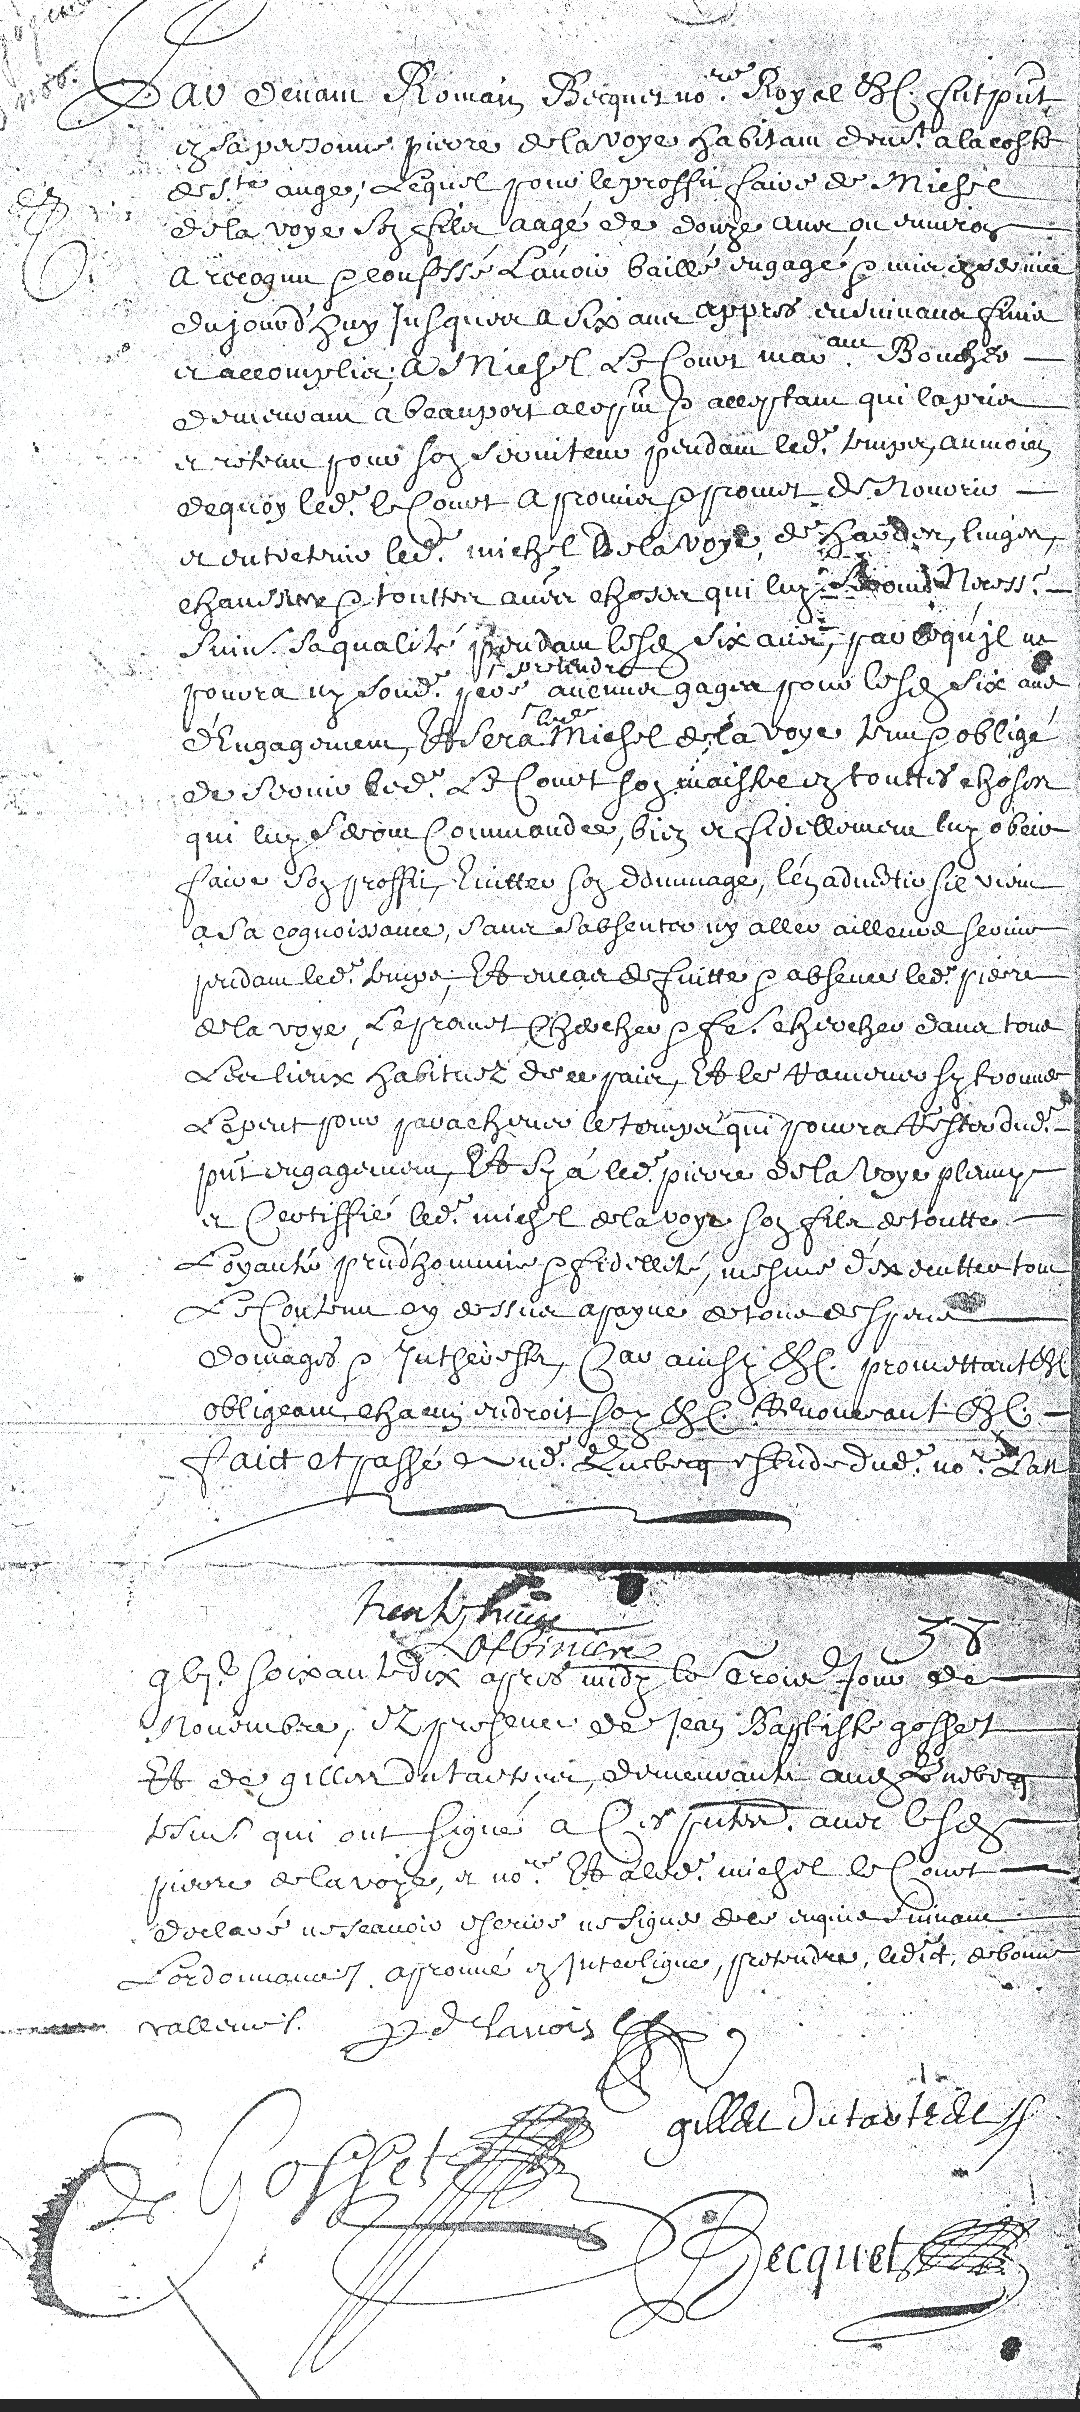 Par devant Romain Becquet no.re Royal &c. fut pnt
en sa personne pierre delavoye habitant demt. a la coste
de s.te ange, Lequel pour le proffit faire de Michel
delavoye son fils aagé de douze ans ou environ
a recognu & confessé L'avoir baillé engagé & mis
du jourd'huy Jusques a six ans appres ensuivans finis
et accomplis, A Michel Le Court mar Boucher
demeurant a beauport a ce pnt & acceptant qui la pris
et retenu pour son serviteur pendant led. temps, au moien
dequoy led. le Court a promis & promet de Nourir
et entretenir led. michel Delavoye, de hardes, linges,
chaussure & touttes autres choses qui luy seront Necess.
suiv. sa qualité pendant lesd. six ans, parcequ'il ne
poura ny sond. pere pretendre aucunes gages pour lesd. six ans
d'Engagement, Et sera led. Michel delavoye tenu & obligé
de servir led. Le Court son maistre en touttes choses
qui luy seront Commandées, bien et fidellement luy obeir
faire son proffit, Eviter son dommage, l'en advertir s'il vient
a sa cognoissance, sans s'absenter ny aller ailleurs servir
pendant led. temps, Et en cas de fuitte & absence led. pierre
delavoye, Le promet Chercher & fe. chercher dans tous
Les lieux habituez de ce pais, Et le Ramener sy trouver
Le peut pour parachever le temps qui poura Rester dud.
pnt engagement, Et sy a led. pierre delavoye plenny
et Certiffié led. michel delavoye son fils de toutte
Loyauté prud'hommie & fidellité, mesme d'exeuter tout
Le Contenu cy dessus a payne de tous despens
domages & Intherests, Car ainsy &c. promettant &c
obligeant chacun endroit soy &c. Renoncant &c.
faict et passé aud. Quebecq estude dud. no.re L'an
38
gbj.c soixante dix apres midy le Troisie Jour de
Novembre, Ez presence de Jean Baptiste gosset
Et de gilles dutartres, demeurants aud. Quebecq
tesms. qui ont signé a Ces pntes. avec lesd.
pierre delavoye, et no.re Et a led. michel le Court
declaré ne scavoir escrire ne signer de ce enquis suivant
L'ordonnance. aprouvé en Interligne, pretendre, ledict, de bonne
valleur.
P delavois
gilles dutartre
Gosset
Becquet